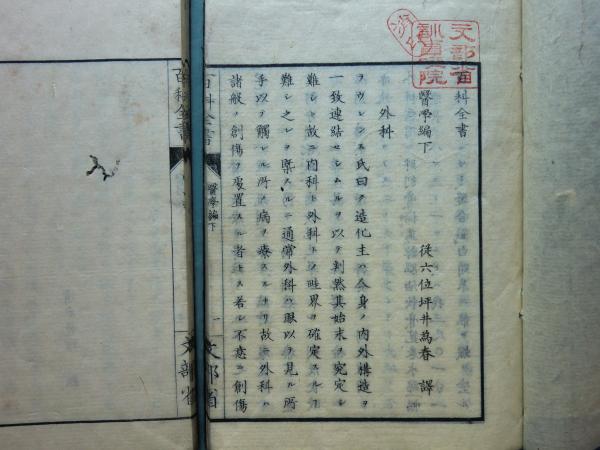 百科全書
醫學編下
從六位坪井為春 譯
外科
ヲウレンス氏曰ク造化主ハ全身ノ内外構造ヲ
一致連結セシムルヲ以テ判然其始末ヲ究定シ
難シ故ニ内科ト外科トノ畦界ヲ確定スルフ
難シ之レヲ槩スルニ通常外科ハ眼以テ見ル所
手以テ觸レル所ノ病ヲ療スルナリ故ニ外科ハ
諸般ノ創傷ヲ處置スル者トス若シ不意ニ創傷
百科全書
醫學編下
一
文部省
百科全書
文部省